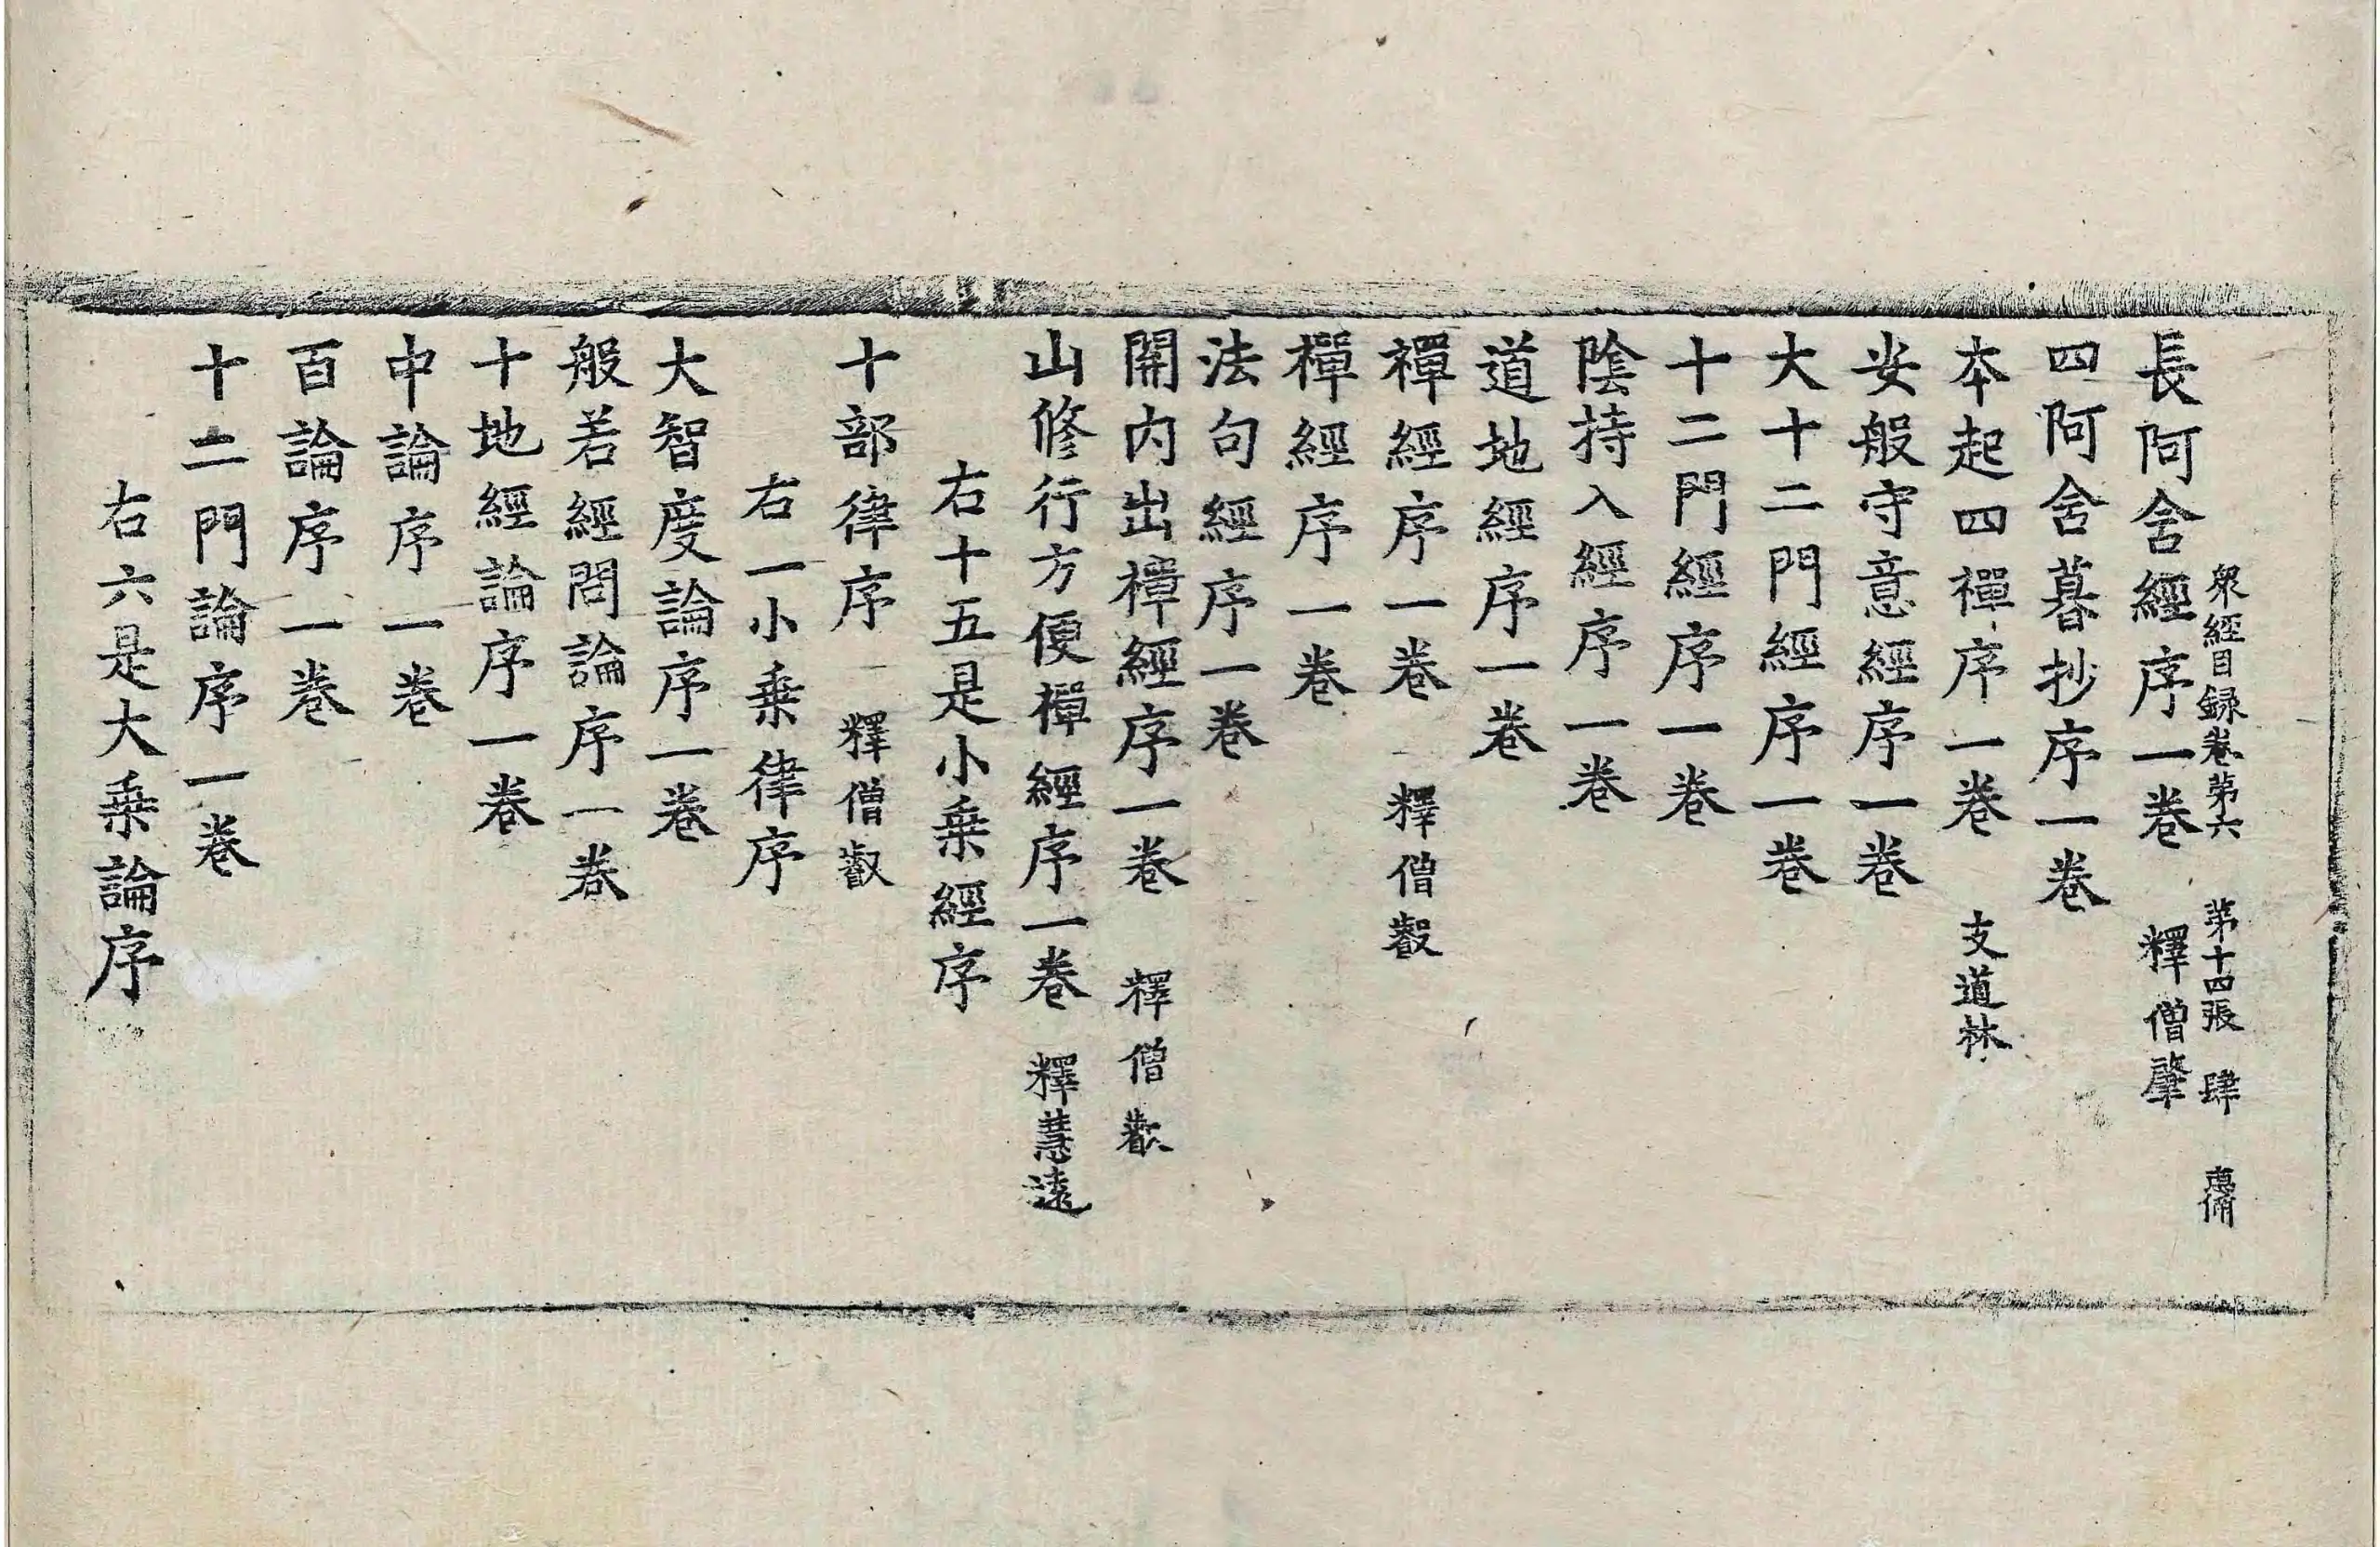 衆經目録卷第六 第十四張 肆
長阿含經序一卷 釋僧肇
四阿含暮抄序一卷
本起四禪序一卷 支道林
安般守意經序一卷
大十二門經序一卷
十二門經序一卷
陰持入經序一卷
道地經序一卷
禪經序一卷 釋僧叡
禪經序一卷
法句經序一卷
關內出禪經序一卷 釋僧叡
山修行方便禪經序一卷 釋慧遠
右十五是小乗經序
十部律序 釋僧叡
右一小乗律序
大智度論序一卷
般若經問論序一卷
十地經論序一卷
中論序一卷
百論序一卷
十二門論序一卷
右六是大乗論序